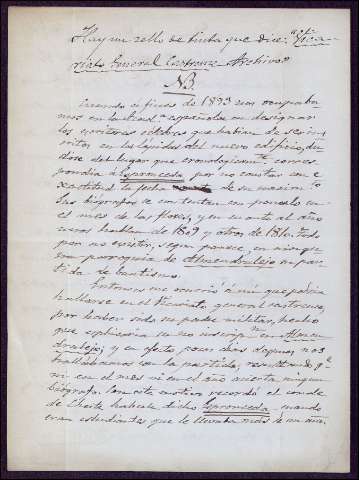 Hay un sello de tinta que dice: "Vica-
riato General Castrense. Archivo"
NB.
Cuando á fines de 1893 nos ocupába-
mos en la Acadª española, en designar
los escritores célebres que habian de ser ins-
critos en las lápidas del nuevo edificio, du-
dose del lugar que cronologicamte corres-
pondia á Espronceda por no constar con e-
xactitud la fecha de su nacimto
Sus biógrafos se contentan con ponerlo en
el mes de las flores, y en cuanto al año
unos hablan de 1809 y otros de 1810. Todo
por no existir, segun parece, en ningu-
na parroquia de Almendralejo su par-
tida de bautismo.
Entonces me ocurrió á mi que podria
hallarse en el Vicariato general castrense,
por haber sido su padre militar, hecho
que explicaria su no inscripn en Almen-
dralejo; y en efecto pocos dias despues nos
hallábamos con la partida, resultando qe
ni en el mes ni en el año acierta ningun
biógrafo. Con este motivo recordó el conde
de Cheste haberle dicho Espronceda, cuando
eran estudiantes que le llevaba más de un año.